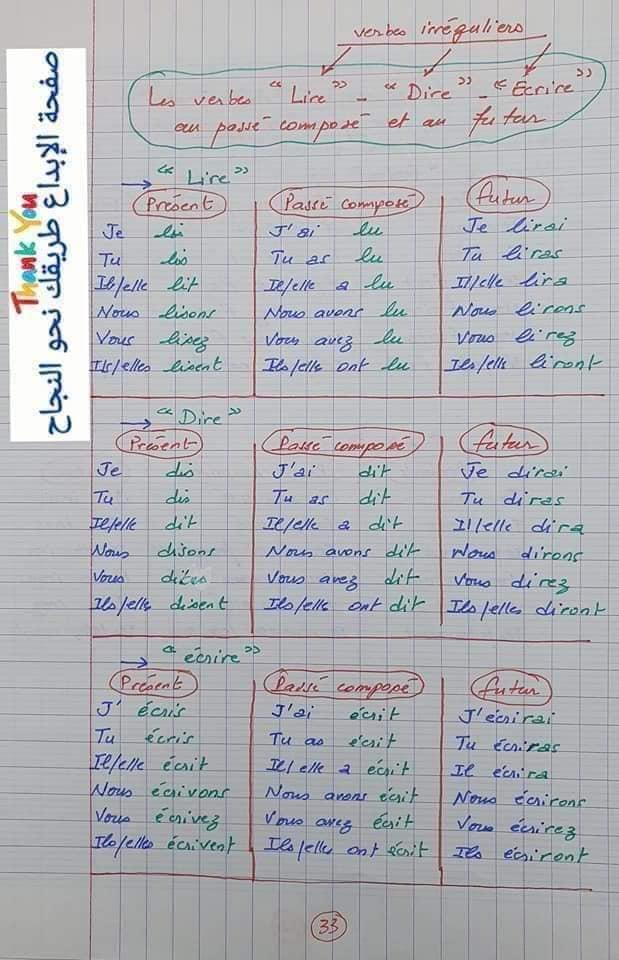 verbes irréguliers
Les verbes "Lire" - "Dire" - "Écrire"
au passé composé et au futur
صفحة الإبداع طريقك نحو النجاح
Thank You
→ "Lire"
Présent Passé composé futur
Je lis J'ai lu Je lirai
Tu lis Tu as lu Tu liras
Il/elle lit Il/elle a lu Il/elle lira
Nous lisons Nous avons lu Nous lirons
Vous lisez Vous avez lu Vous lirez
Ils/elles lisent Ils/elle ont lu Ils/elle liront
→ "Dire"
Présent Passé composé futur
Je dis J'ai dit Je dirai
Tu dis Tu as dit Tu diras
Il/elle dit Il/elle a dit Il/elle dira
Nous disons Nous avons dit Nous dirons
Vous dites Vous avez dit Vous direz
Ils/elle disent Ils/elle ont dit Ils/elles diront
→ "écrire"
Présent Passé composé futur
J' écris J'ai écrit J'écrirai
Tu écris Tu as écrit Tu écriras
Il/elle écrit Il/elle a écrit Il écrira
Nous écrivons Nous avons écrit Nous écrirons
Vous écrivez Vous avez écrit Vous écrirez
Ils/elles écrivent Ils/elles ont écrit Ils écriront
33